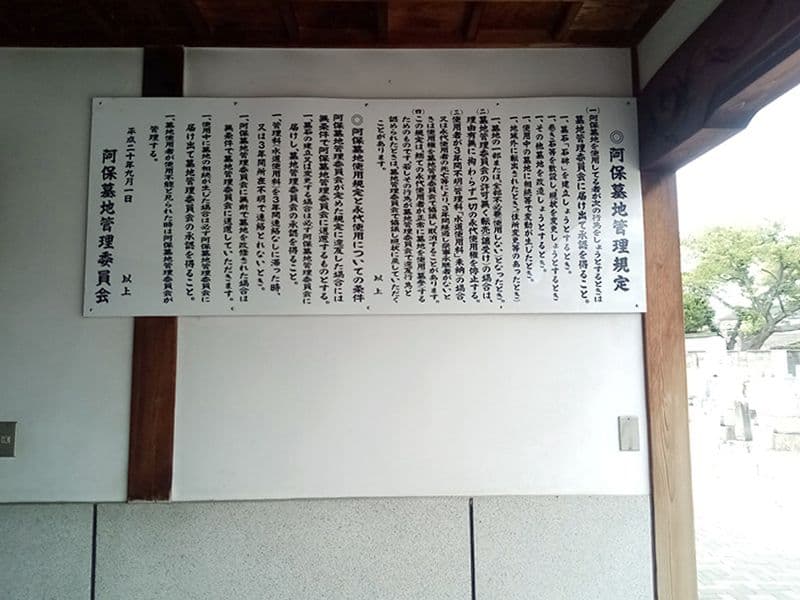 ◎阿保墓地管理規定
(一)阿保墓地を使用してる者が次の行為をしようとするときは
墓地管理委員会に届け出て承認を得ること。
一、墓石「石碑」を建立しようとするとき。
一、巻き石等を敷設し、現状を変更しようとするとき
一、その他墓地を改造しようとするとき。
一、使用中の墓地に相続等で変動が生じたとき。
一、地域外に転出されたとき(住所変更等のあったとき)
一、墓地の一部または、全部不必要(使用しない)となったとき。
(二)墓地管理委員会の許可無く転売(譲受け)の場合は、
理由有無に拘わらず一切の永代使用権を停止する。
(三)使用者が3年間不明「管理料・水道使用料」未納の場合、
又は永代使用者の死亡等により、3年間経過し使用申請者がないと
きは使用権を墓地管理委員会で協議し取消すことが有ります。
(四)この規定は、総ての永代使用者が正常に墓地を使用・墓参する
ためのもので、若しその行為が墓地管理委員会で違反行為と
認められたときは、墓地管理委員会で協議し現状に戻していただく
ことがあります。
以上
◎阿保墓地使用規定と永代使用についての条件
阿保墓地管理委員会が定めた規定に違反した場合には
無条件で阿保墓地管理委員会に返還するものとする。
一、墓石の建立又は変更する場合は必ず阿保墓地管理委員会に
届けし、墓地管理委員会の承認を得ること。
一、管理料・水道使用料を3年間連絡なしに滞った時、
又は3年間所在不明で連絡とれないとき。
一、阿保墓地管理委員会に無断で墓地を改修された場合は
無条件で墓地管理委員会に返還していただきます。
一、使用中に墓地の相続が生じた場合は必ず阿保墓地管理委員会に
届け出て墓地管理委員会の承認を得ること。
一、墓地使用者が使用不能と見られた時は阿保墓地管理委員会が
管理する。
以上
平成二十年九月一日
阿保墓地管理委員会